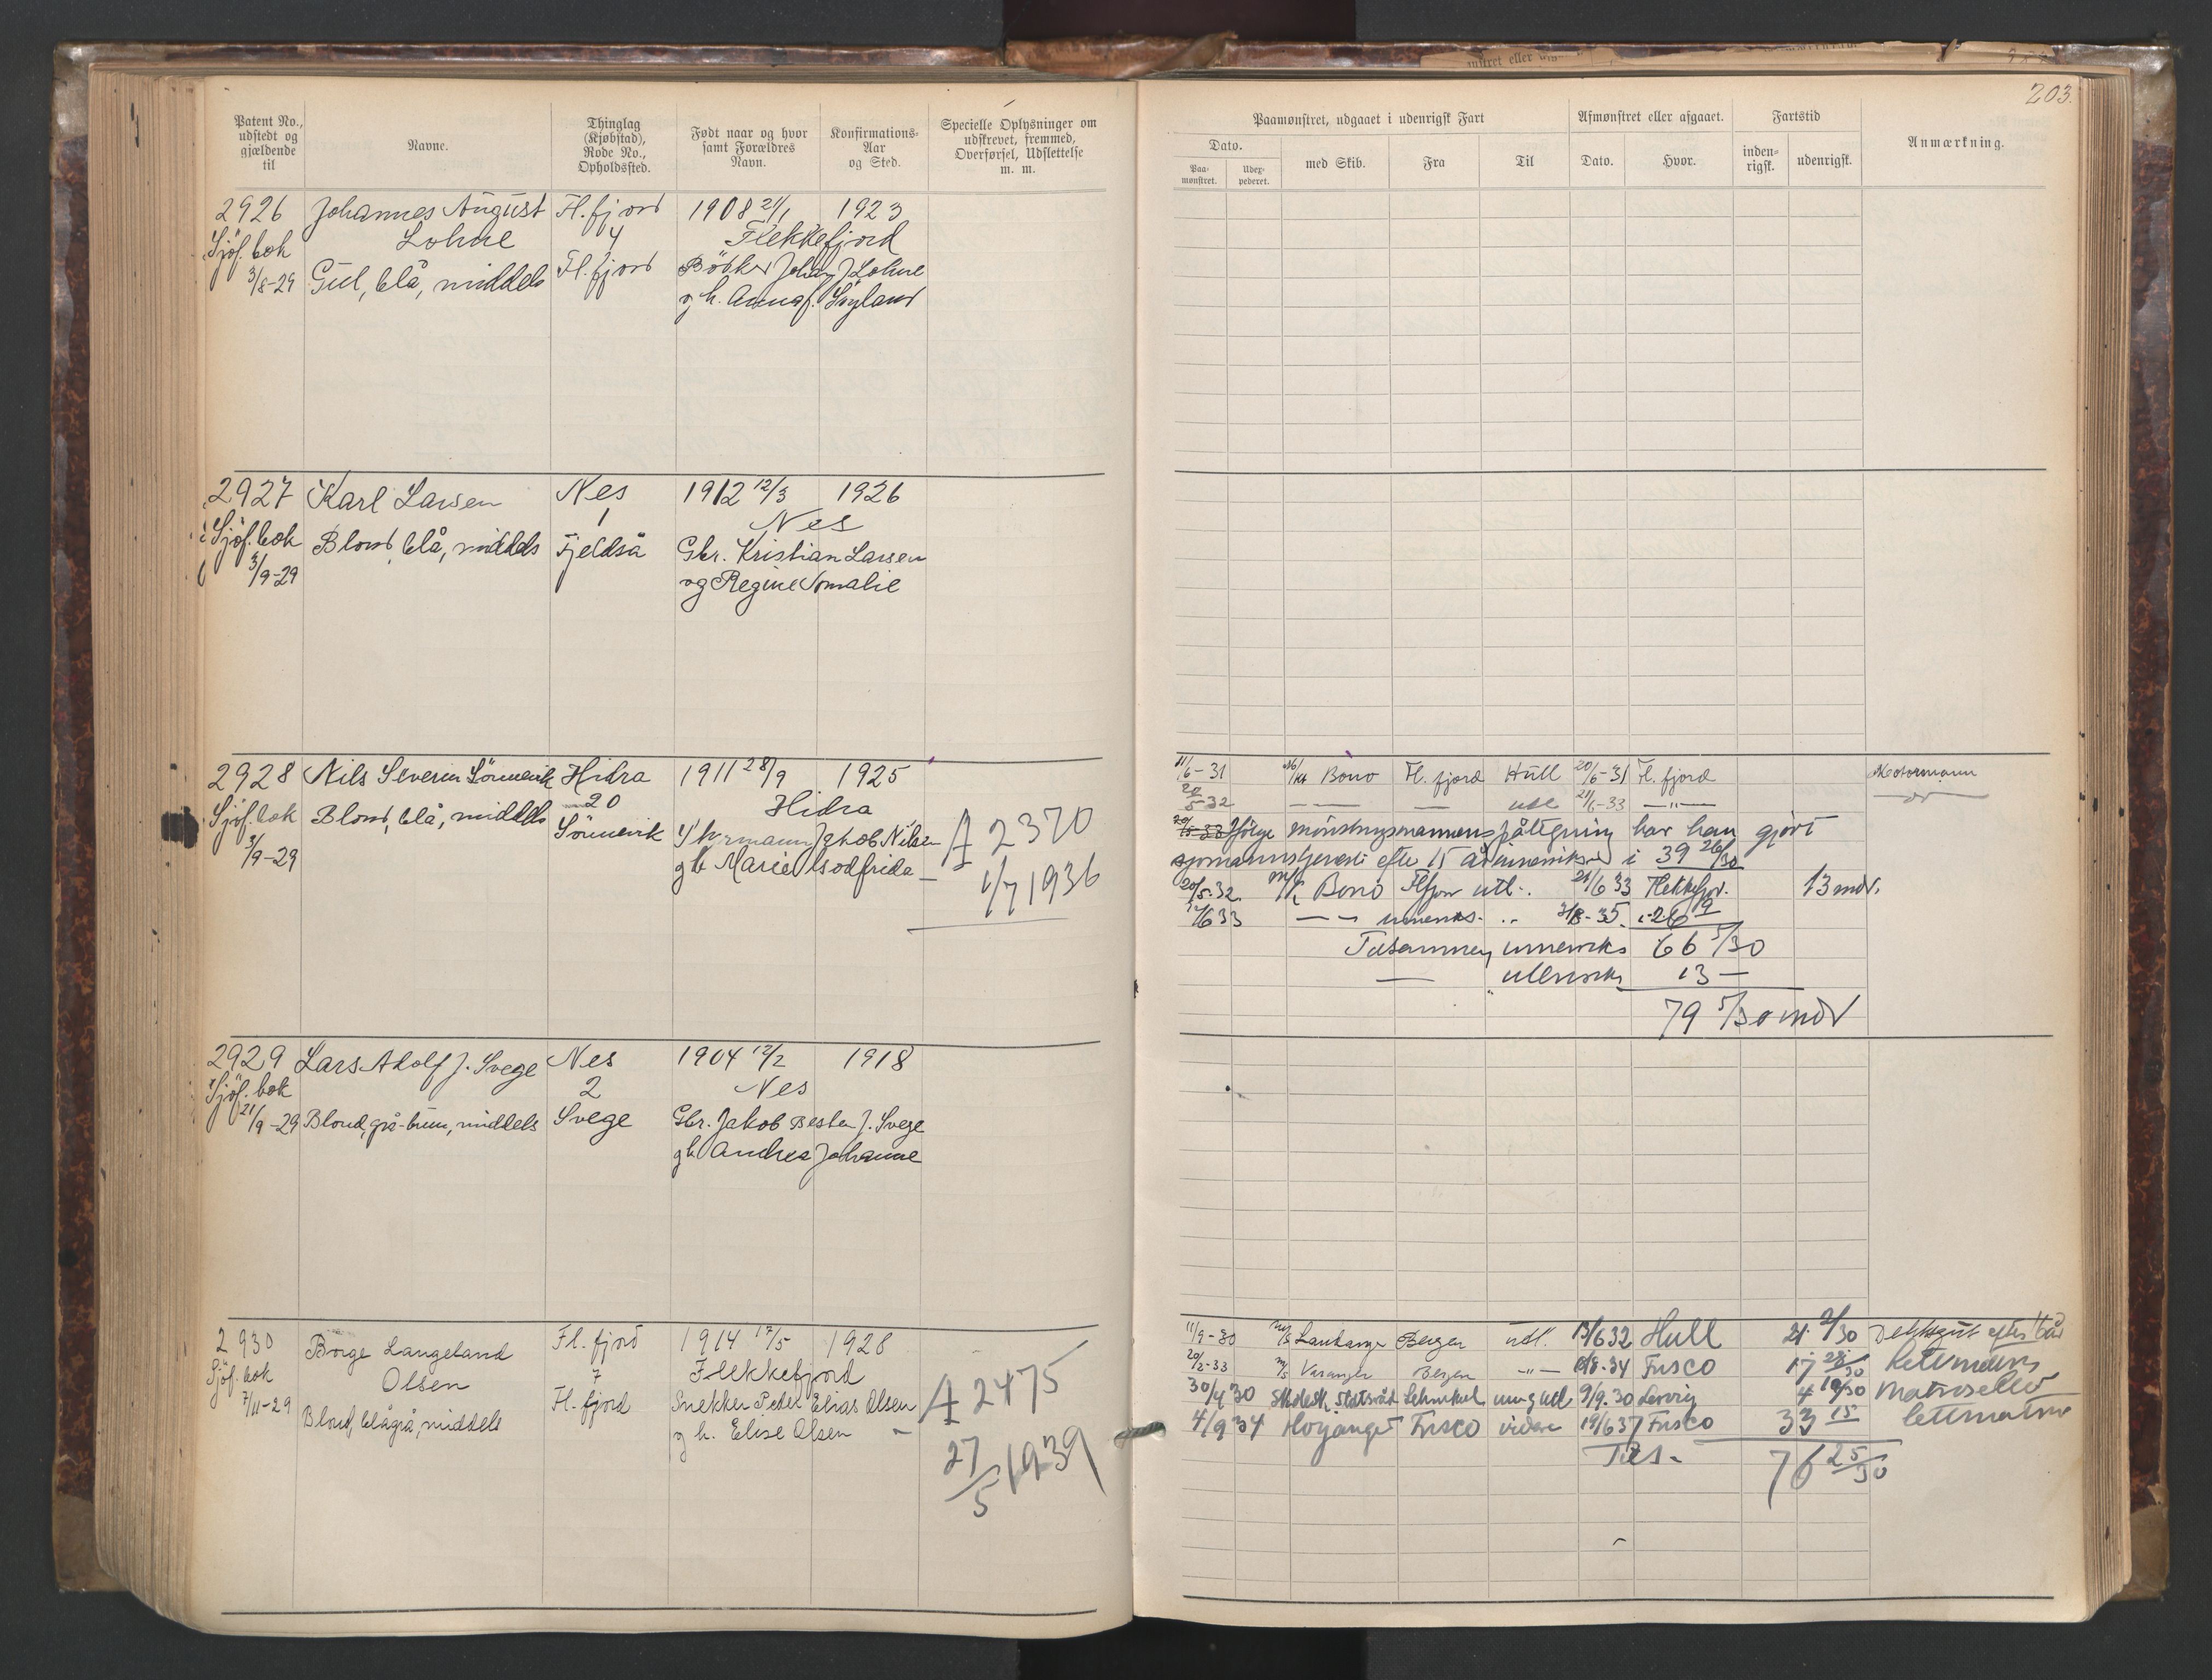 203.
Patent No., udstedt og gjældende til
Navne.
Thinglag (Kjøbstad), Rode No., Opholdssted.
Født naar og hvor samt Forældres Navn.
Konfirmations-Aar og Sted.
Specielle Oplysninger om udskrevet, fremmed, Overførsel, Udslettelse m. m.
Paamønstret, udgaaet i udenrigsk Fart
Afmønstret eller afgaaet.
Fartstid
Anmærkning.
Dato.
Paa-mønstret.
Udex-pederet.
med Skib.
Fra
Til
Dato.
Hvor.
inden-rigsk.
udenrigsk.
2926 Johannes August Fl.fjord 1908 21/1 1923
Sjöf. bok Lohne 4 Flekkefjord
3/8-29 Gul, blå, middels Fl.fjord Bökker Johan J Lohne
g h. Anna f. Söyland
2927 Karl Larsen Nes 1912 12/3 1926
Sjöf. bok 1 Nes
3/9-29 Blond, blå, middels Fjeldså Gbr. Kristian Larsen
og Regine Tomalie
2928 Nils Severin Sörmevik Hidra 1911 28/9 1925
Sjöf. bok Blond, blå, middels 20 Hidra
3/9-29 Sörmevik Styrmann Jakob Nilsen
g h Marie Godfrida
A 2370
1/7 1936
11/6-31 M/kk Bono Fl.fjord Hull 20/6-31 Fl.fjord Motormann
20/5-32 — — — utl 21/6-33 —"—
Ifölge mönstringsmannens påtegning har han gjort
sjomannstjeneste efter 15 år innenriks i 39 26/30
20/5-32 M/k Bono Flfjor utl. 21/6 33 Flekkefjor. 13 mdr.
6 33 — — innenrs. 3/8-35 26 9
Tilsammen innenriks 66 5/30
— utenriks 13 —
79 5/30 mdr
2929 Lars Adolf J. Svege Nes 1904 12/2 1918
Sjöf. bok 2 Nes
21/9-29 Blond, grå-brun, middels Svege Gbr. Jakob Besten J. Svege
g h Andrea Johanne
2930 Borge Langeland Fl.fjord 1914 17/5 1928
Sjöf. bok Olsen 7 Flekkefjord
7/11-29 Blond, blågrå, middels Fl.fjord Snekker Peder Elias Olsen
g h. Elise Olsen
A 2475
27/5 1939
11/9-30 M/S Laurhange Bergen utl. 13/6 32 Hull 21 2/30 Dekksgut efter 1 år
20/2-33 M/S Varanger Bergen —"— 8-34 Frisco 17 28/30 lettmatros
30/4 30 Skolesk. Statsråd Lehmkul inn g utl 9/9.30 Lervig 4 10/30
4/9 34 Hoyanger Frisco videre 19/6 37 Frisco 33 15 lettmatros
Tils. 76 25/30